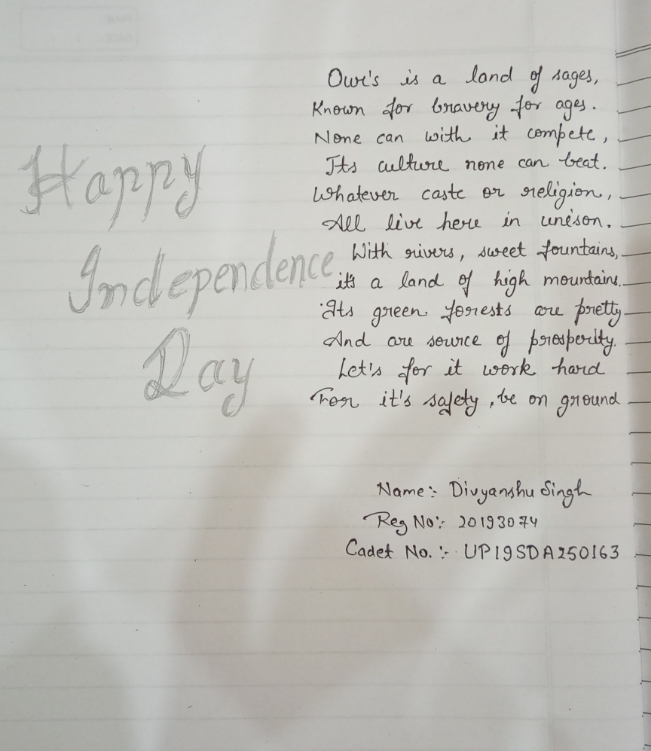 Happy
Independence
Day
Our's is a land of sages,
Known for bravery for ages.
None can with it compete,
Its culture none can beat.
Whatever caste or religion,
All live here in unison.
With rivers, sweet fountains,
it's a land of high mountains.
Its green forests are pretty
And are source of prosperity.
Let's for it work hard
For it's safety, be on ground
Name:- Divyanshu Singh
Reg No:- 20193074
Cadet No. :- UP19SDA250163